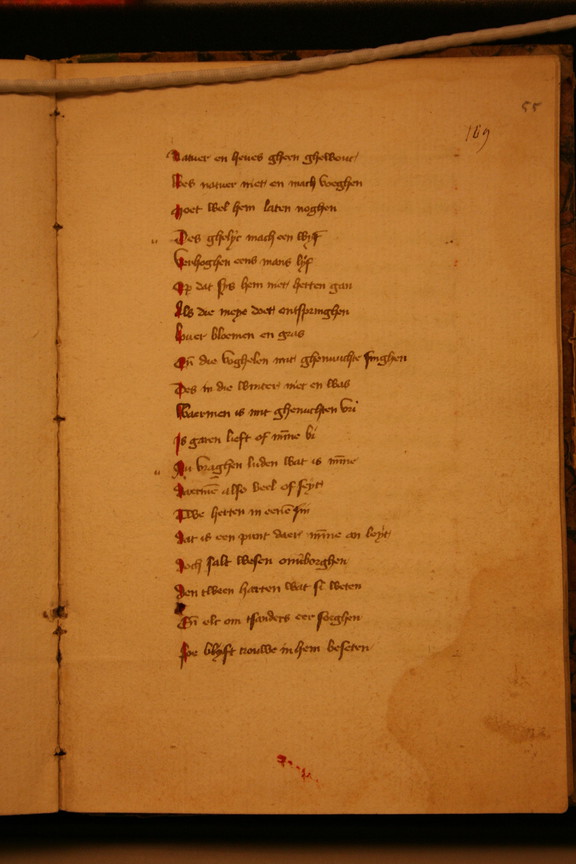 55
169
Natuer en heues gheen ghewout
Des natuer niet en mach voeghen
Moet wel hem laten noghen
Des ghelyc mach een wyf
Verhoghen eens mans lyf
Op dat sys hem met herten gan
Als die meye doet entspringhen
Louer bloemen en gras
Eñ die voghelen mit ghenuechte singhen
Des in die winter niet en was
Waermen is mit ghenuchten vri
Is garen lieft of mīne bi
Nu vraghen luden wat is mīne
Daermē also veel of seyt
Twe herten in eenē sin
Dat is een punt daer mīne an leyt
Doch salt wesen onuerborghen
Den tween harten wat si weten
Eñ elc om tsanders eer sorghen
Soe blyft trouwe in hem beseten